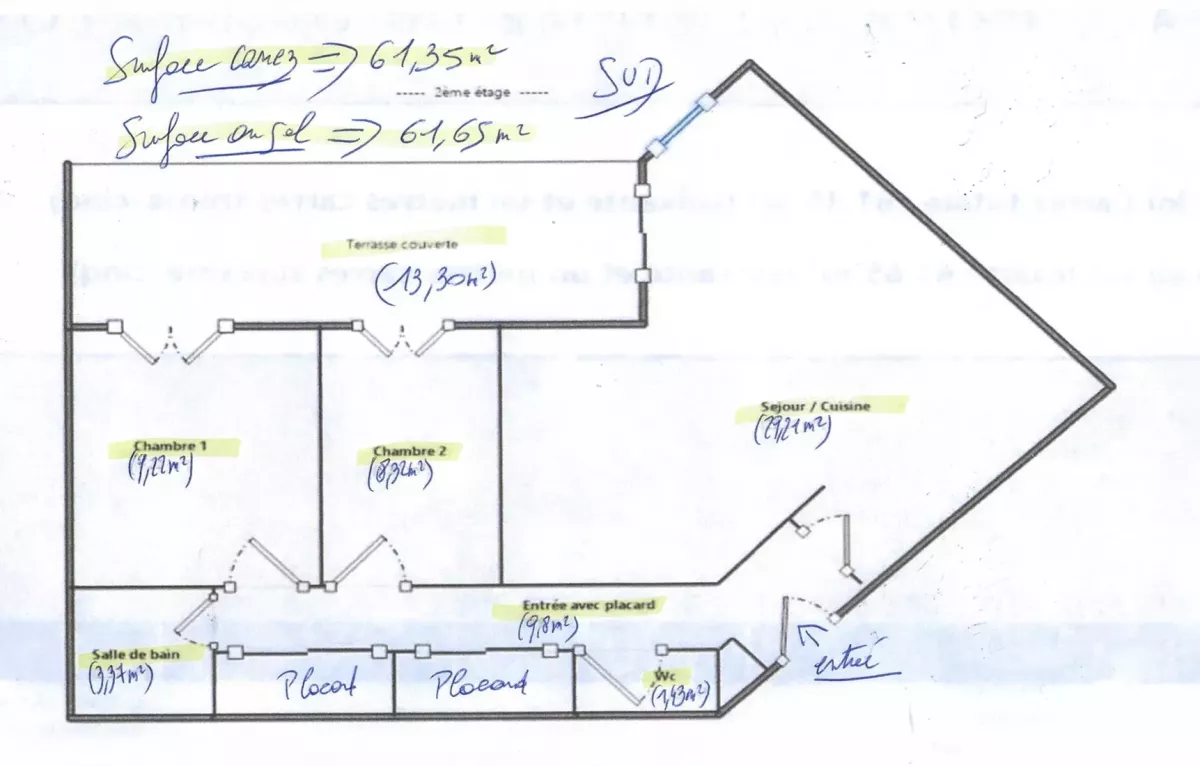 Surface carrez => 61,35 m²
SUD
----- 2ème étage -----
Surface au sol => 61,65 m²
Terrasse couverte
(13,30m²)
Sejour / Cuisine
(29,21m²)
Chambre 1
(9,22m²)
Chambre 2
(8,32m²)
Entrée avec placard
(9,8m²)
Salle de bain
(3,37m²)
Placard
Placard
Wc
(1,43m²)
entrée